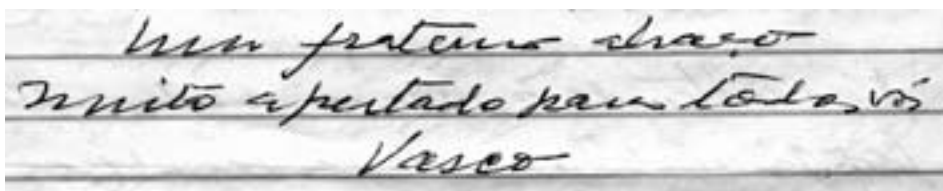 Um fraterno abraço
muito apertado para todos vós
Vasco